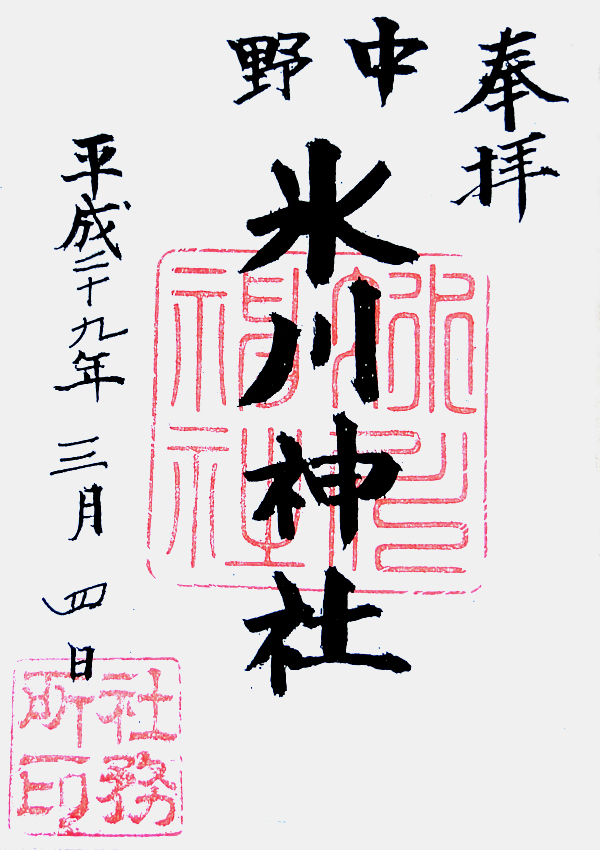 奉拝
中野
氷川神社
平成二十九年三月四日
社務所印